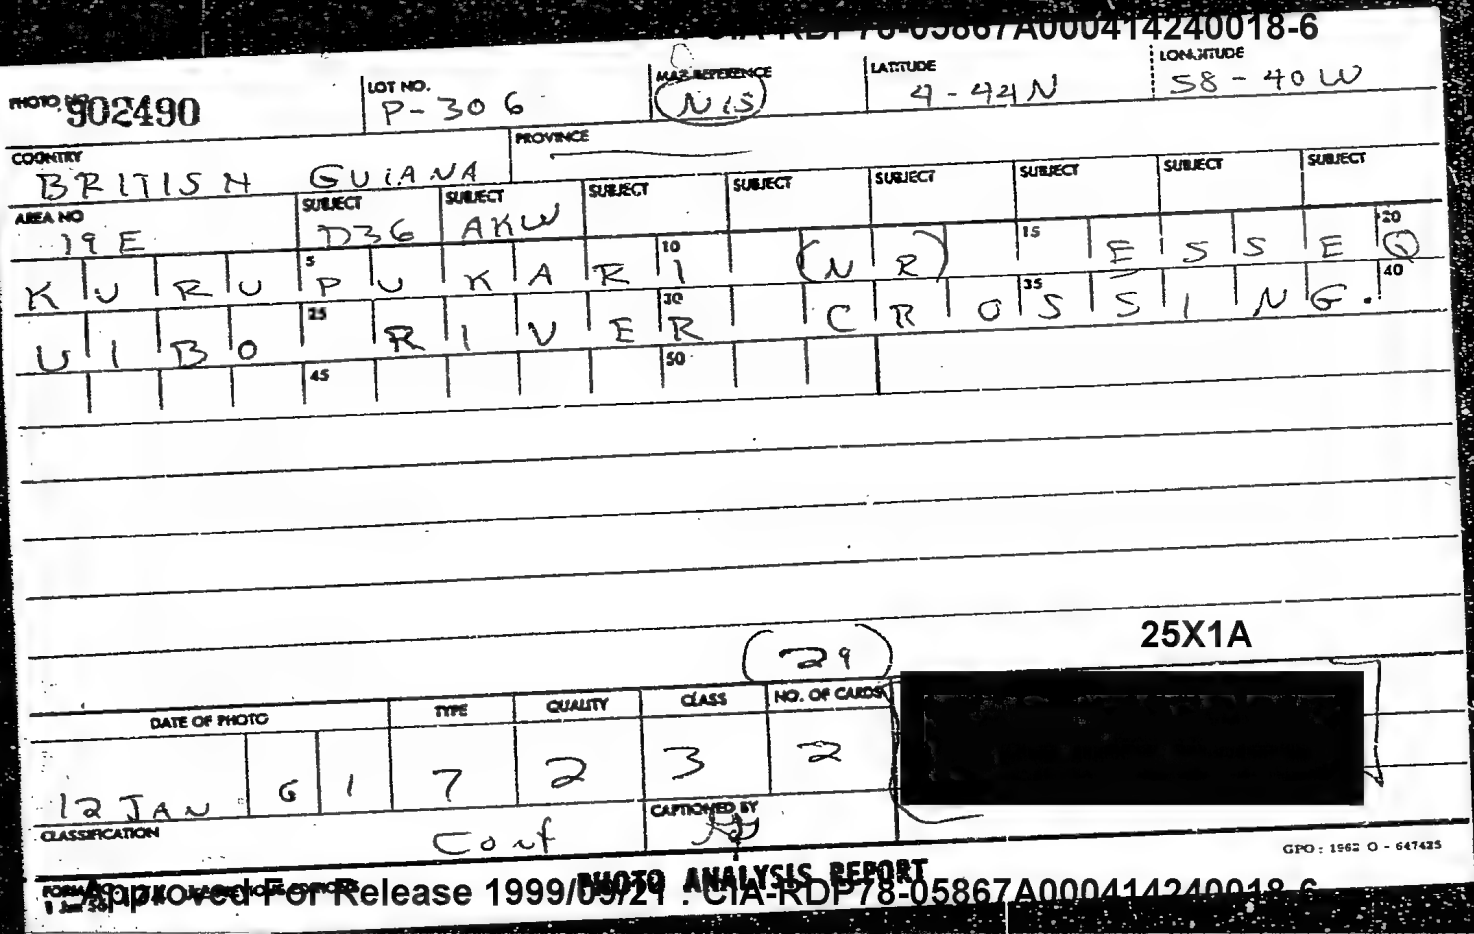 CIA-RDP78-05867A000414240018-6
PHOTO NO. 902490 LOT NO. P-306 MAP REFERENCE (NIS) LATITUDE 4-44N LONGITUDE 58-40W
COUNTRY BRITISH GUIANA PROVINCE
AREA NO 19E SUBJECT D36 SUBJECT AKW SUBJECT SUBJECT SUBJECT SUBJECT SUBJECT SUBJECT
5 10 15 20
KURUPUKARI (NR) ESSEQ
25 30 35 40
UIBO RIVER CROSSING.
45 50
(29)
25X1A
DATE OF PHOTO TYPE QUALITY CLASS NO. OF CARDS
12 JAN 61 7 2 3 2
CLASSIFICATION Conf CAPTIONED BY
GPO: 1962 O - 647425
PHOTO ANALYSIS REPORT
Approved For Release 1999/09/21 : CIA-RDP78-05867A000414240018-6